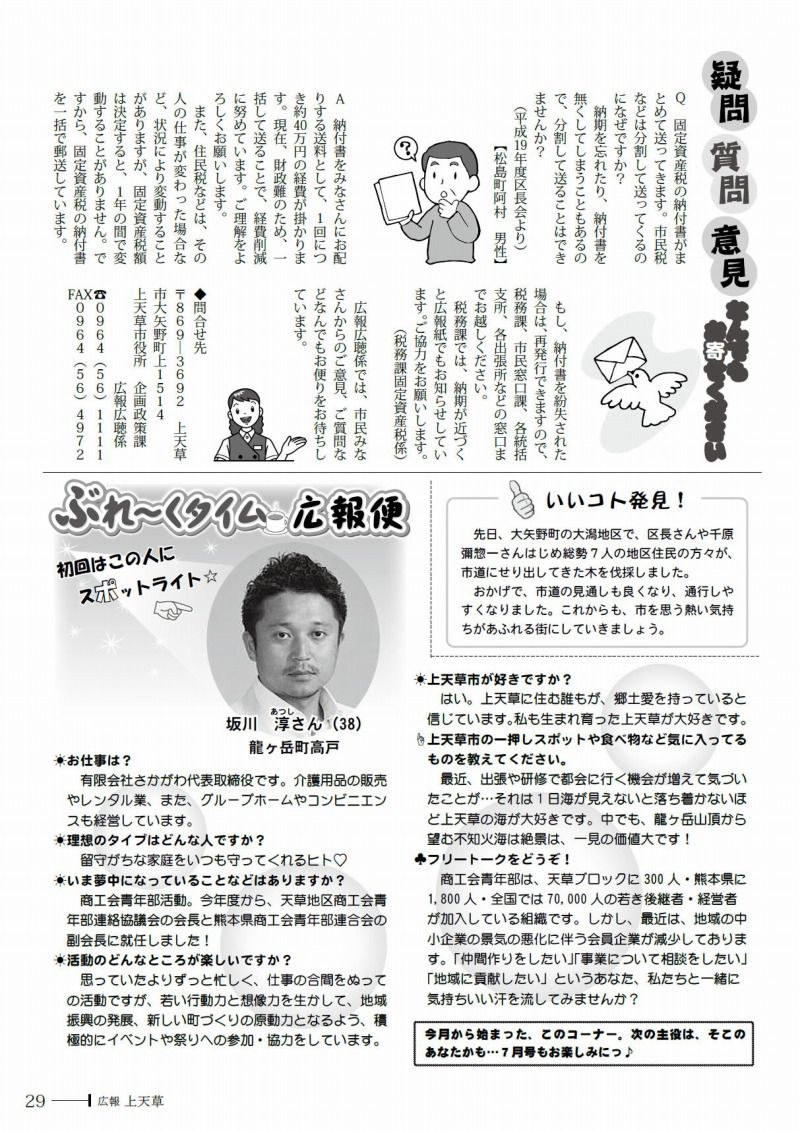 疑問 質問 意見
なんでもお寄せください
Q　固定資産税の納付書がま
とめて送ってきます。市民税
などは分割して送ってくるの
になぜですか？
納期を忘れたり、納付書を
無くしてしまうこともあるの
で、分割して送ることはでき
ませんか？
（平成19年度区長会より）
【松島町阿村　男性】
A　納付書をみなさんにお配
りする送料として、1回につ
き約40万円の経費が掛かりま
す。現在、財政難のため、一
括して送ることで、経費削減
に努めています。ご理解をよ
ろしくお願いします。
また、住民税などは、その
人の仕事が変わった場合な
ど、状況により変動すること
がありますが、固定資産税額
は決定すると、1年の間で変
動することがありません。で
すから、固定資産税の納付書
を一括で郵送しています。
もし、納付書を紛失された
場合は、再発行できますので、
税務課、市民窓口課、各統括
支所、各出張所などの窓口ま
でお越しください。
税務課では、納期が近づく
と広報紙でもお知らせしてい
ます。ご協力をお願いします。
（税務課固定資産税係）
広報広聴係では、市民みな
さんからのご意見、ご質問な
どなんでもお便りをお待ちし
ています。
◆問合せ先
〒869―3692　上天草
市大矢野町上1514
上天草市役所　企画政策課
広報広聴係
☎0964（56）1111
FAX0964（56）4972
ぶれ～くタイム 広報便
初回はこの人に
スポットライト☆
あつし
坂川　淳さん（38）
龍ヶ岳町高戸
☀お仕事は？
有限会社さかがわ代表取締役です。介護用品の販売
やレンタル業、また、グループホームやコンビニエン
スも経営しています。
☀理想のタイプはどんな人ですか？
留守がちな家庭をいつも守ってくれるヒト♡
☀いま夢中になっていることなどはありますか？
商工会青年部活動。今年度から、天草地区商工会青
年部連絡協議会の会長と熊本県商工会青年部連合会の
副会長に就任しました！
☀活動のどんなところが楽しいですか？
思っていたよりずっと忙しく、仕事の合間をぬって
の活動ですが、若い行動力と想像力を生かして、地域
振興の発展、新しい町づくりの原動力となるよう、積
極的にイベントや祭りへの参加・協力をしています。
いいコト発見！
先日、大矢野町の大潟地区で、区長さんや千原
彌惣一さんはじめ総勢７人の地区住民の方々が、
市道にせり出してきた木を伐採しました。
おかげで、市道の見通しも良くなり、通行しや
すくなりました。これからも、市を思う熱い気持
ちがあふれる街にしていきましょう。
☀上天草市が好きですか？
はい。上天草に住む誰もが、郷土愛を持っていると
信じています。私も生まれ育った上天草が大好きです。
☝上天草市の一押しスポットや食べ物など気に入ってる
ものを教えてください。
最近、出張や研修で都会に行く機会が増えて気づい
たことが…それは１日海が見えないと落ち着かないほ
ど上天草の海が大好きです。中でも、龍ヶ岳山頂から
望む不知火海は絶景は、一見の価値大です！
♣フリートークをどうぞ！
商工会青年部は、天草ブロックに300人・熊本県に
1,800人・全国では70,000人の若き後継者・経営者
が加入している組織です。しかし、最近は、地域の中
小企業の景気の悪化に伴う会員企業が減少しておりま
す。「仲間作りをしたい」「事業について相談をしたい」
「地域に貢献したい」というあなた、私たちと一緒に
気持ちいい汗を流してみませんか？
今月から始まった、このコーナー。次の主役は、そこの
あなたかも…７月号もお楽しみにっ♪
29 広報 上天草